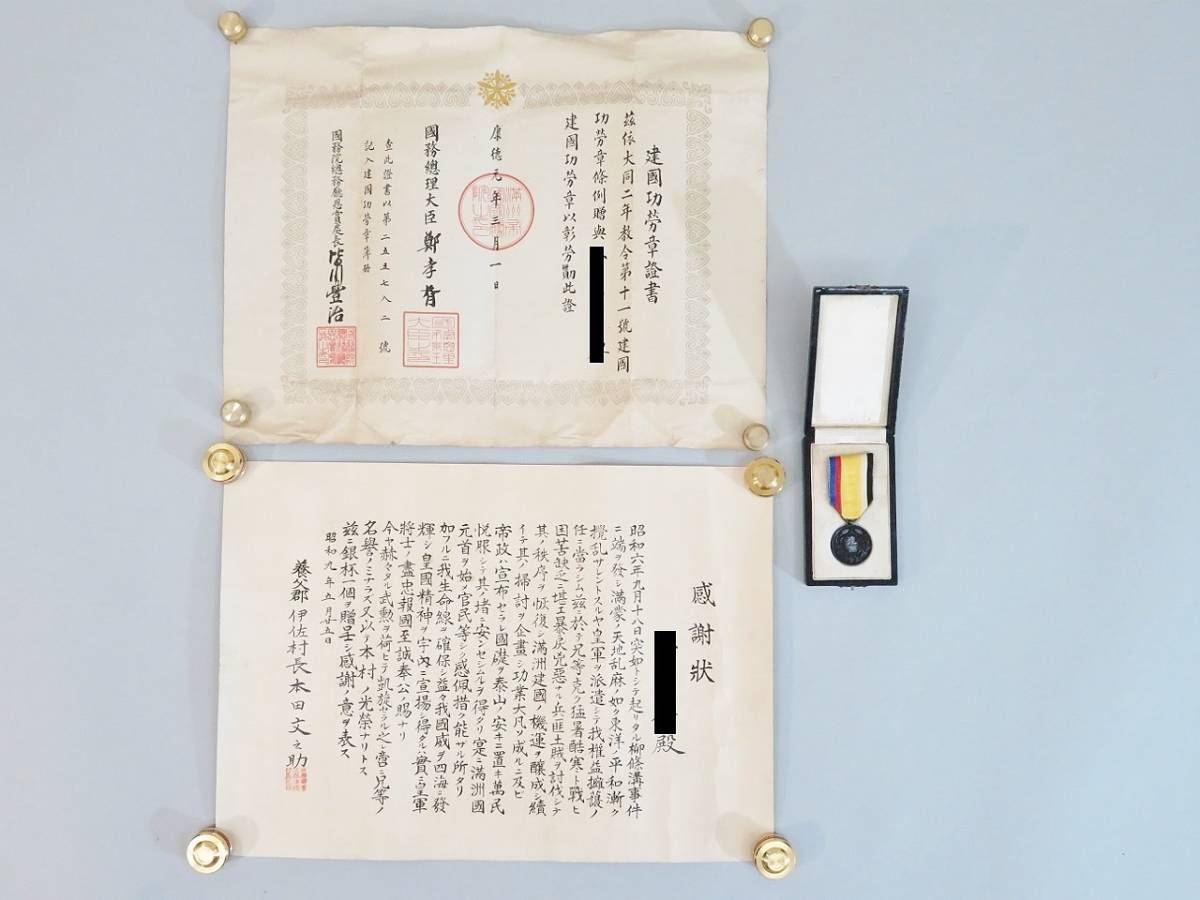 建國功勞章證書
茲依大同二年敎令第十一號建國
功勞章條例贈與
建國功勞章以彰勞勩此證
康德元年三月一日
國務總理大臣 鄭孝胥
查此證書以第二五五七八二號
記入建國功勞章簿册
國務院總務廳恩賞處長 皆川豐治
感謝狀
殿
昭和六年九月十八日突如トシテ起リタル柳條溝事件
ニ端ヲ發シ滿蒙ノ天地乱麻ノ如ク東洋ノ平和漸ク
攪乱サレントスルヤ皇軍ヲ派遣シテ我權益擁護ノ
任ニ當ラシム茲ニ於テ兄等克ク猛暑酷寒ト戰ヒ
困苦缺乏ニ堪エ暴戾兇惡ナル兵匪土賊ヲ討伐シテ
其ノ秩序ヲ恢復シ滿洲建國ノ機運ヲ釀成シ續
イテ其ノ掃討ヲ企畫シ功業大凡ソ成ルニ及ビ
帝政ハ宣布セラレ國礎ヲ泰山ノ安キニ置キ萬民
悅服シテ其ノ堵ニ安ンセシムルヲ得タリ寔ニ滿洲國
元首ヲ始メ官民等シク感佩措ク能サル所タリ
加フルニ我生命線ヲ確保シ益々我國威ヲ四海ニ發
輝シ皇國精神ヲ宇內ニ宣揚シ得タルハ實ニ皇軍
將士ノ盡忠報國至誠奉公ノ賜ナリ
今ヤ赫々タル武勲ヲ荷ヒテ凱旋セラル之レ啻ニ兄等ノ
名譽ノミナラス又以テ本村ノ光榮ナリトス
茲ニ銀杯一個ヲ贈呈シ感謝ノ意ヲ表ス
昭和九年五月廿五日
養父郡伊佐村長本田文之助